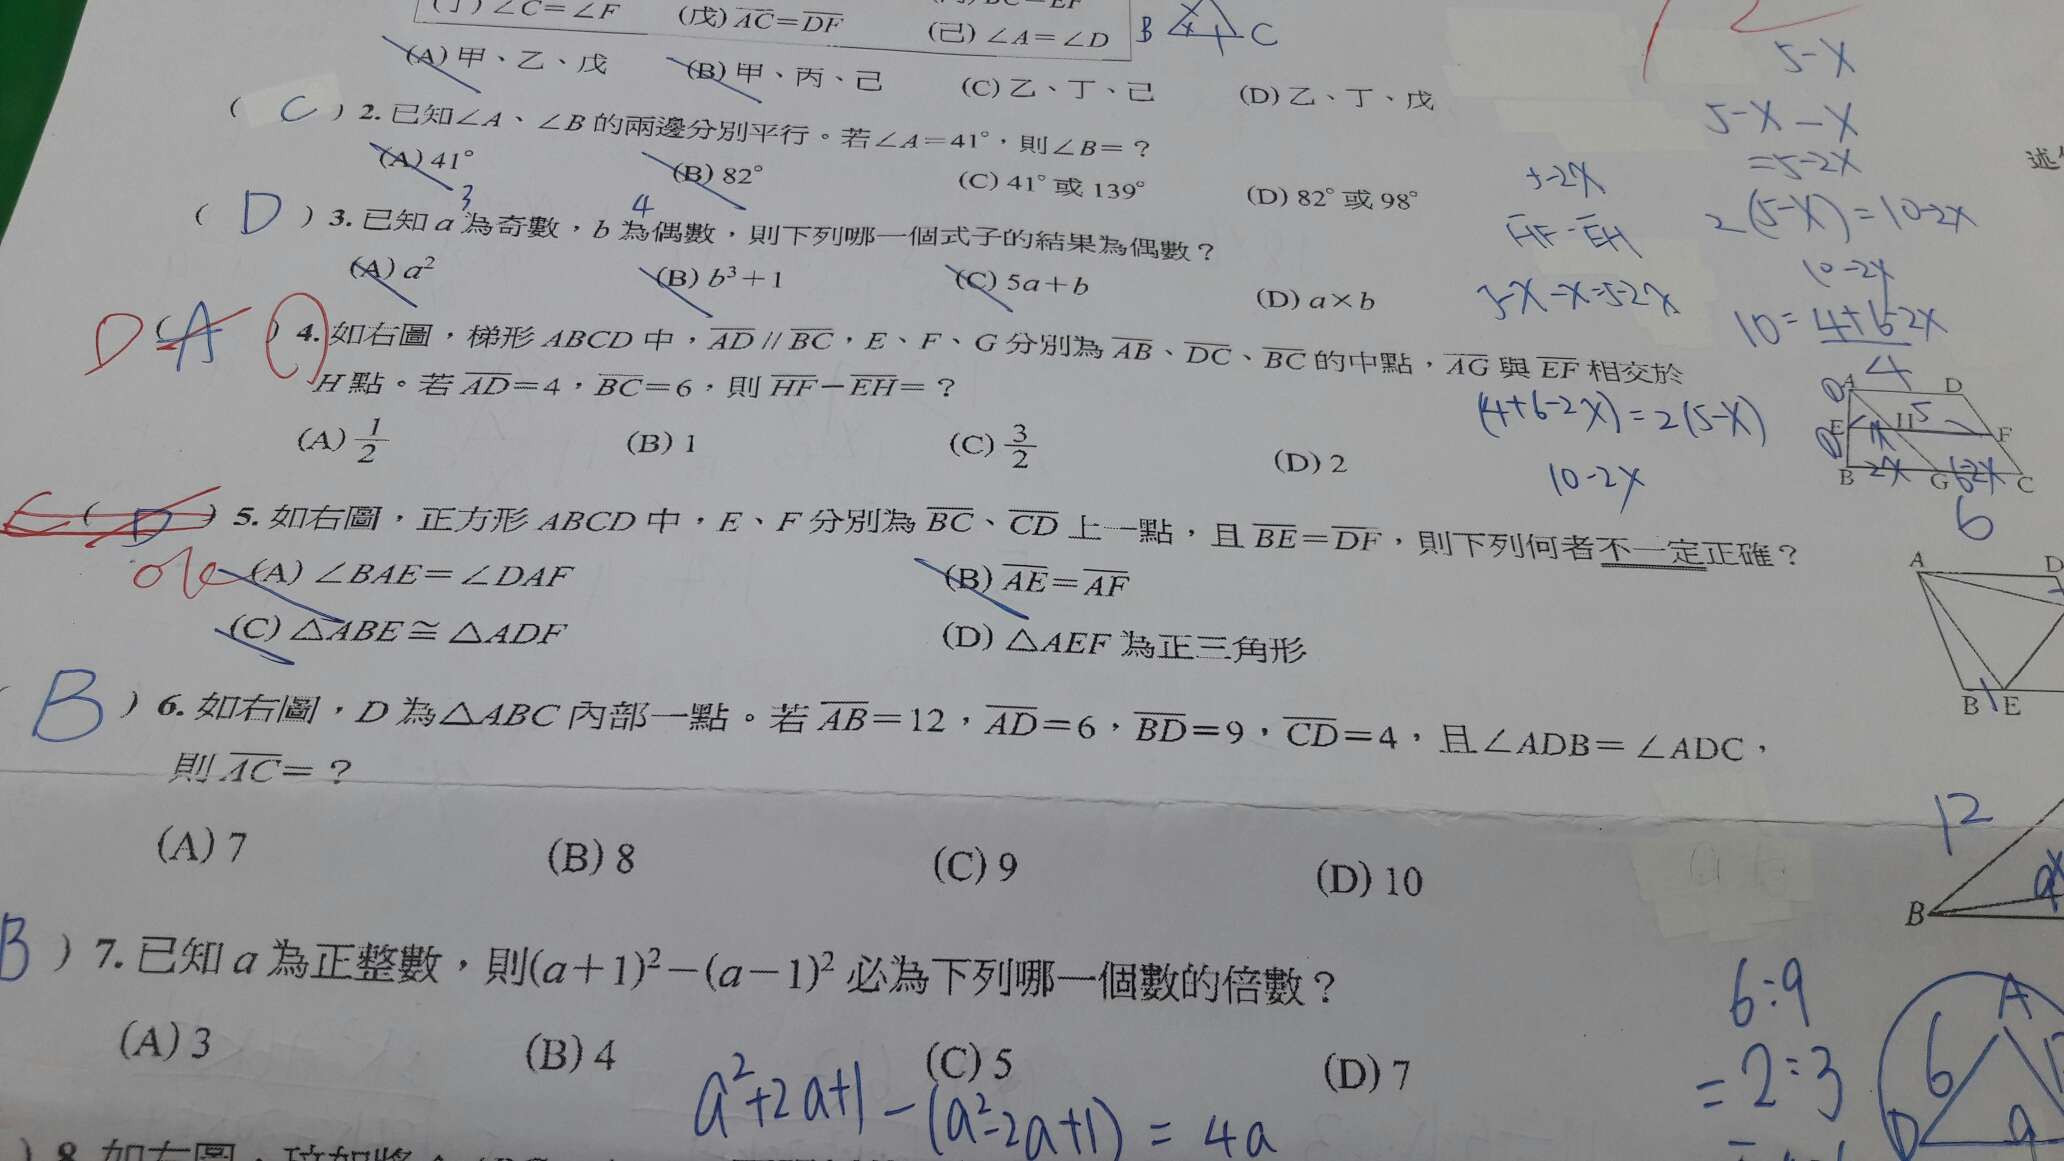 (丁) ∠C=∠F (戊) AC=DF (己) ∠A=∠D B C
(A) 甲、乙、戊 (B) 甲、丙、己 (C) 乙、丁、己 (D) 乙、丁、戊
( C ) 2. 已知∠A、∠B 的兩邊分別平行。若∠A=41°,則∠B=?
(A) 41° (B) 82° (C) 41° 或 139° (D) 82° 或 98°
3 4
( D ) 3. 已知 a 為奇數,b 為偶數,則下列哪一個式子的結果為偶數?
(A) a² (B) b³+1 (C) 5a+b (D) a×b
D ( A ) 4. 如右圖,梯形 ABCD 中,AD // BC,E、F、G 分別為 AB、DC、BC 的中點,AG 與 EF 相交於
H 點。若 AD=4,BC=6,則 HF-EH=?
(A) 1/2 (B) 1 (C) 3/2 (D) 2
( D ) 5. 如右圖,正方形 ABCD 中,E、F 分別為 BC、CD 上一點,且 BE=DF,則下列何者不一定正確?
ok (A) ∠BAE=∠DAF (B) AE=AF
(C) △ABE≅△ADF (D) △AEF 為正三角形
( B ) 6. 如右圖,D 為△ABC 內部一點。若 AB=12,AD=6,BD=9,CD=4,且∠ADB=∠ADC,
則 AC=?
(A) 7 (B) 8 (C) 9 (D) 10
B ) 7. 已知 a 為正整數,則(a+1)²-(a-1)² 必為下列哪一個數的倍數?
(A) 3 (B) 4 (C) 5 (D) 7
a²+2a+1-(a²-2a+1)=4a
) 8. 如右圖,
5-X
5-X-X
=5-2X
2(5-X)=10-2X
10-2X
HF-EH
5-X-X=5-2X
10=4+6-2X
(4+6-2X)=2(5-X)
10-2X
4
A D
E H 5 F
B 2X G 6-2X C
6
A D
B E
12
B 9
6:9
=2:3
A
6
D 9